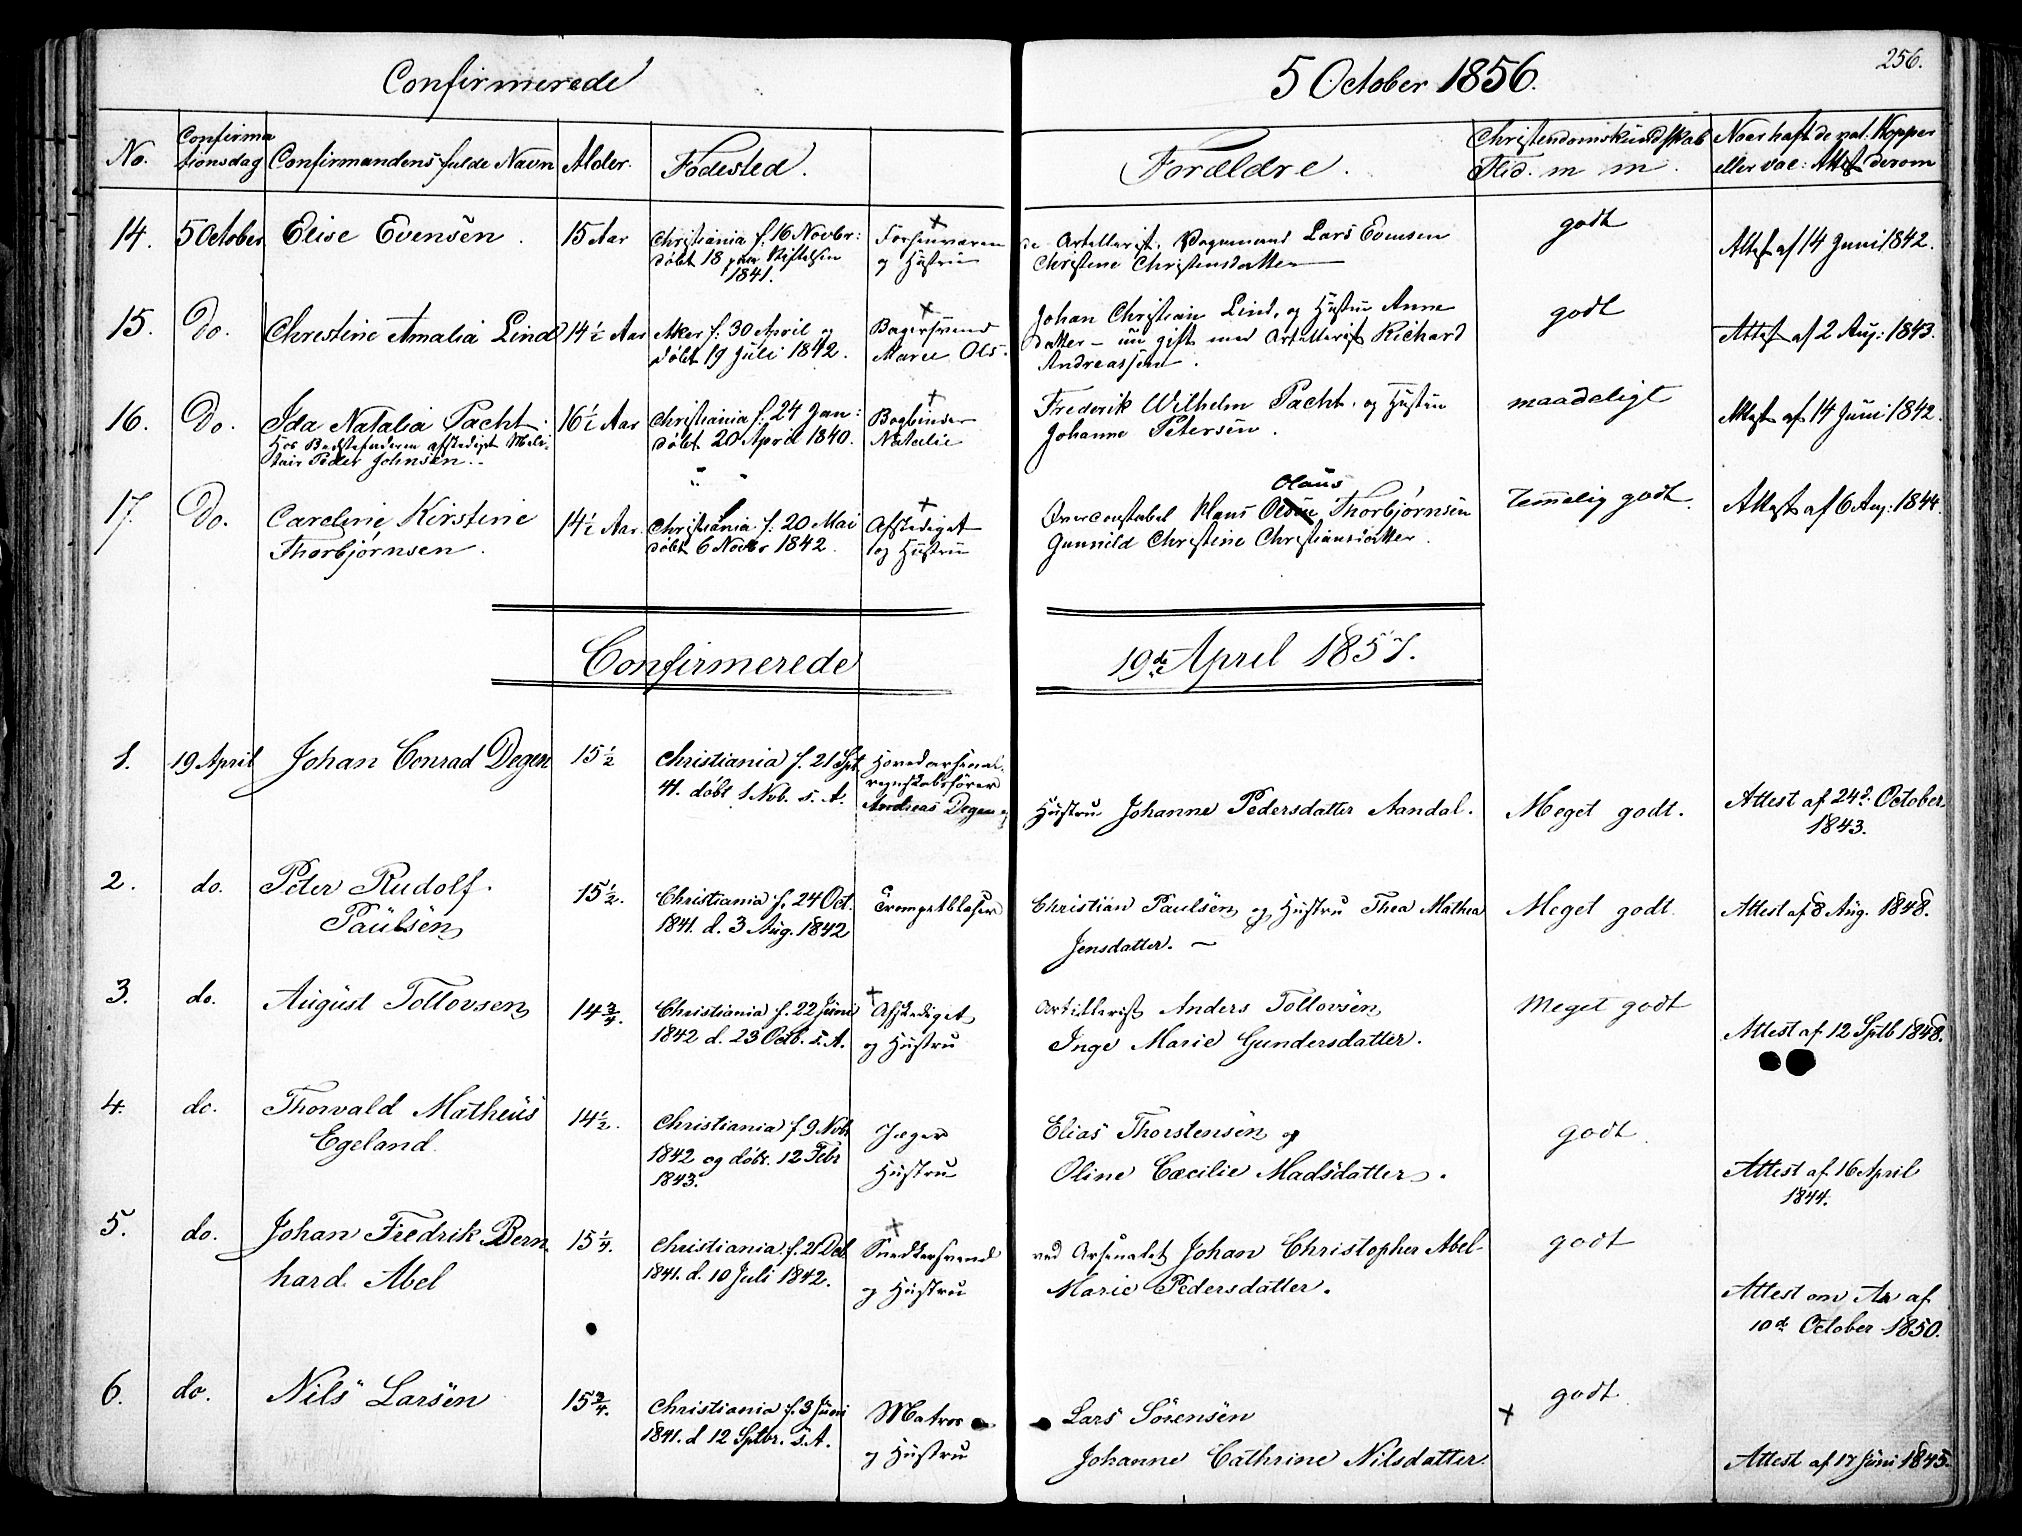 256.
Confirmerede 5 October 1856.
No. Confirmationsdag Confirmandens fulde Navn Alder. Fødested. Forældre. Christendomskundskab Flid. m m. Naar haft de nat: Kopper eller vac: Attest derom
14. 5 October Elise Evensen. 15 Aar Christiania f. 16 Novbr: døbt 18 1841. og Hustru Artillerist. Vognmand Lars Evensen Christine Christensdatter godt Attest af 14 Juni 1842.
15. Do. Christine Amalia Lind 14 1/2 Aar Aker f. 30 April og døbt 19 Juli 1842. Bagersvend Maren Ols- Johan Christian Lind, og Hustru Anne datter – nu gift med Artillerist Richard Andreassen. godt Attest af 2 Aug: 1843.
16. Do. Ida Natalia Pacht. Hos Bedstefaderen afskediget Militair Peder Johnsen.. 16 1/2 Aar Christiania f. 24 Jan: døbt 20 April 1840. Bogbinder Natalie Frederik Wilhelm Pacht. og Hustru Johanne Petersen. maadeligt Attest af 14 Juni 1842.
17. Do. Caroline Kirstine Thorbjørnsen. 14 1/2 Aar. Christiania f. 20 Mai døbt 6 Novbr 1842. Afskediget og Hustru Overconstabel Klaus Olaus Thorbjørnsen Gunnild Christine Christiansdatter. Temmelig godt. Attest af 6 Aug: 1844.
Confirmerede 19de April 1857.
1. 19 April Johan Conrad Degen 15 1/2 Christiania f. 21 Spt 41. døbt 1 Nvb. s. A. Hovedarsenalregnskabsfører Andreas Degen og Hustru Johanne Pedersdatter Aandal. Meget godt. Attest af 24d. October 1843.
2. do. Peter Rudolf Paulsen 15 1/2. Christiania f. 24 Oct. 1841. d. 3 Aug. 1842 Trompetblæser Christian Paulsen og Hustru Thea Mathea Jensdatter. – Meget godt. Attest af 8 Aug. 1848.
3. do. August Tollovsen 14 3/4. Christiania f. 22 Juni 1842 d. 23 Octb. s. A. Afskediget og Hustru Artillerist Anders Tollovsen Inge Marie Gundersdatter. Meget godt Attest af 12 Sptb 1848.
4. do. Thorvald Matheus Egeland 14 1/2. Christiania f 9 Nvbr 1842 og døbt. 12 Febr 1843. Jæger Hustru Elias Thorstensen og Oline Cæcilie Madsdatter. godt. Attest af 16 April 1844.
5. do. Johan Fredrik Bernhard Abel 15 1/4. Christiania f. 21 Dcb. 1841. d. 10 Juli 1842. Snedkersvend og Hustru ved Arsenalet Johan Christopher Abel Marie Pedersdatter. godt Attest om Ar af 10d October 1850.
6. do. Nils Larsen 15 3/4. Christiania f. 3 Juni 1841. d 12 Sptbr. s. A. Matros og Hustru Lars Sørensen Johanne Cathrine Nilsdatter. godt Attest af 17 Juni 1845.